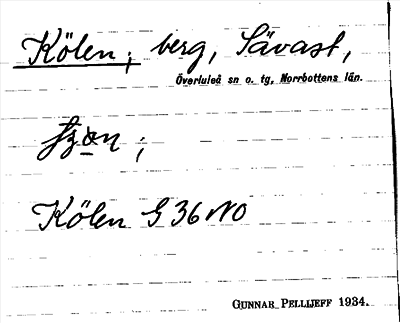 Kölen; berg, Sävast,
Överluleå sn o. tg, Norrbottens län.
Kölen G 36 NO
GUNNAR PELLIJEFF 1934.